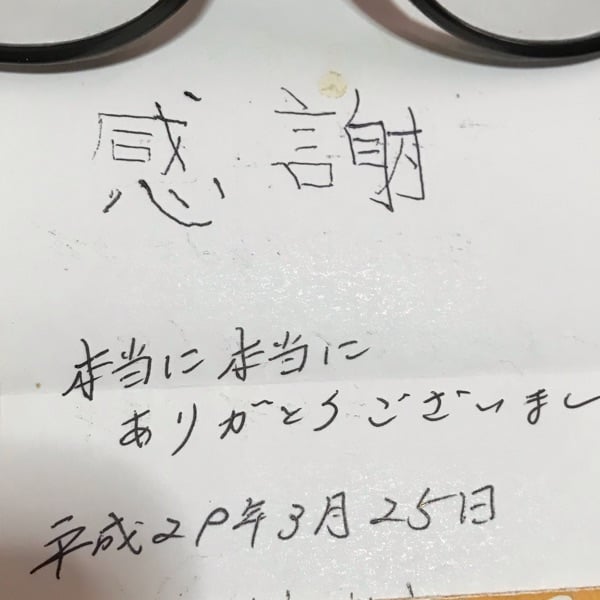 感謝
本当に本当に
ありがとうございまし
平成29年3月25日